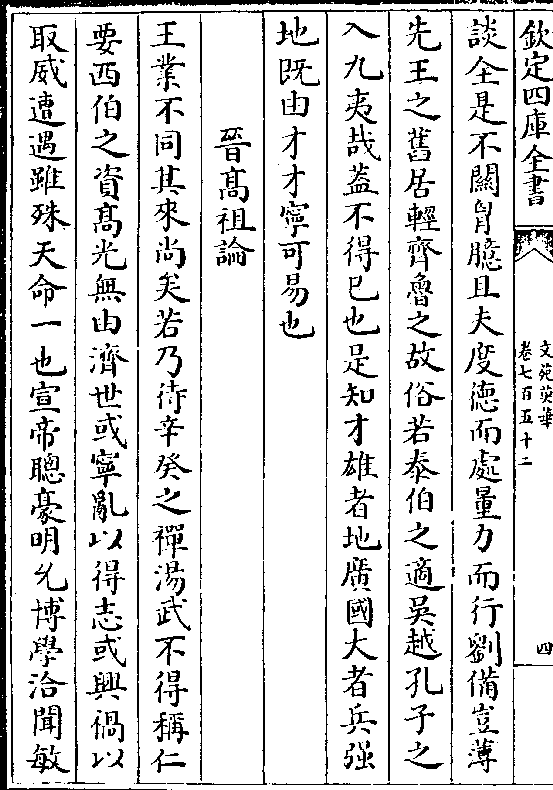 欽定四庫全書
文苑英華
卷七百五十二
四
談全是不關胷臆且夫度德而處量力而行劉備豈薄
先王之舊居輕齊魯之故俗若泰伯之適吳越孔子之
入九夷哉葢不得已也是知才雄者地廣國大者兵强
地既由才才寧可易也
晉髙祖論
王業不同其來尚矣若乃待辛癸之禪湯武不得稱仁
要西伯之資髙光無由濟世或寧亂以得志或興禍以
取威遭遇雖殊天命一也宣帝聰豪明允博學洽聞敏